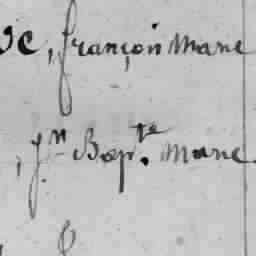 , françois Marie
, Jn Bapte. Marie